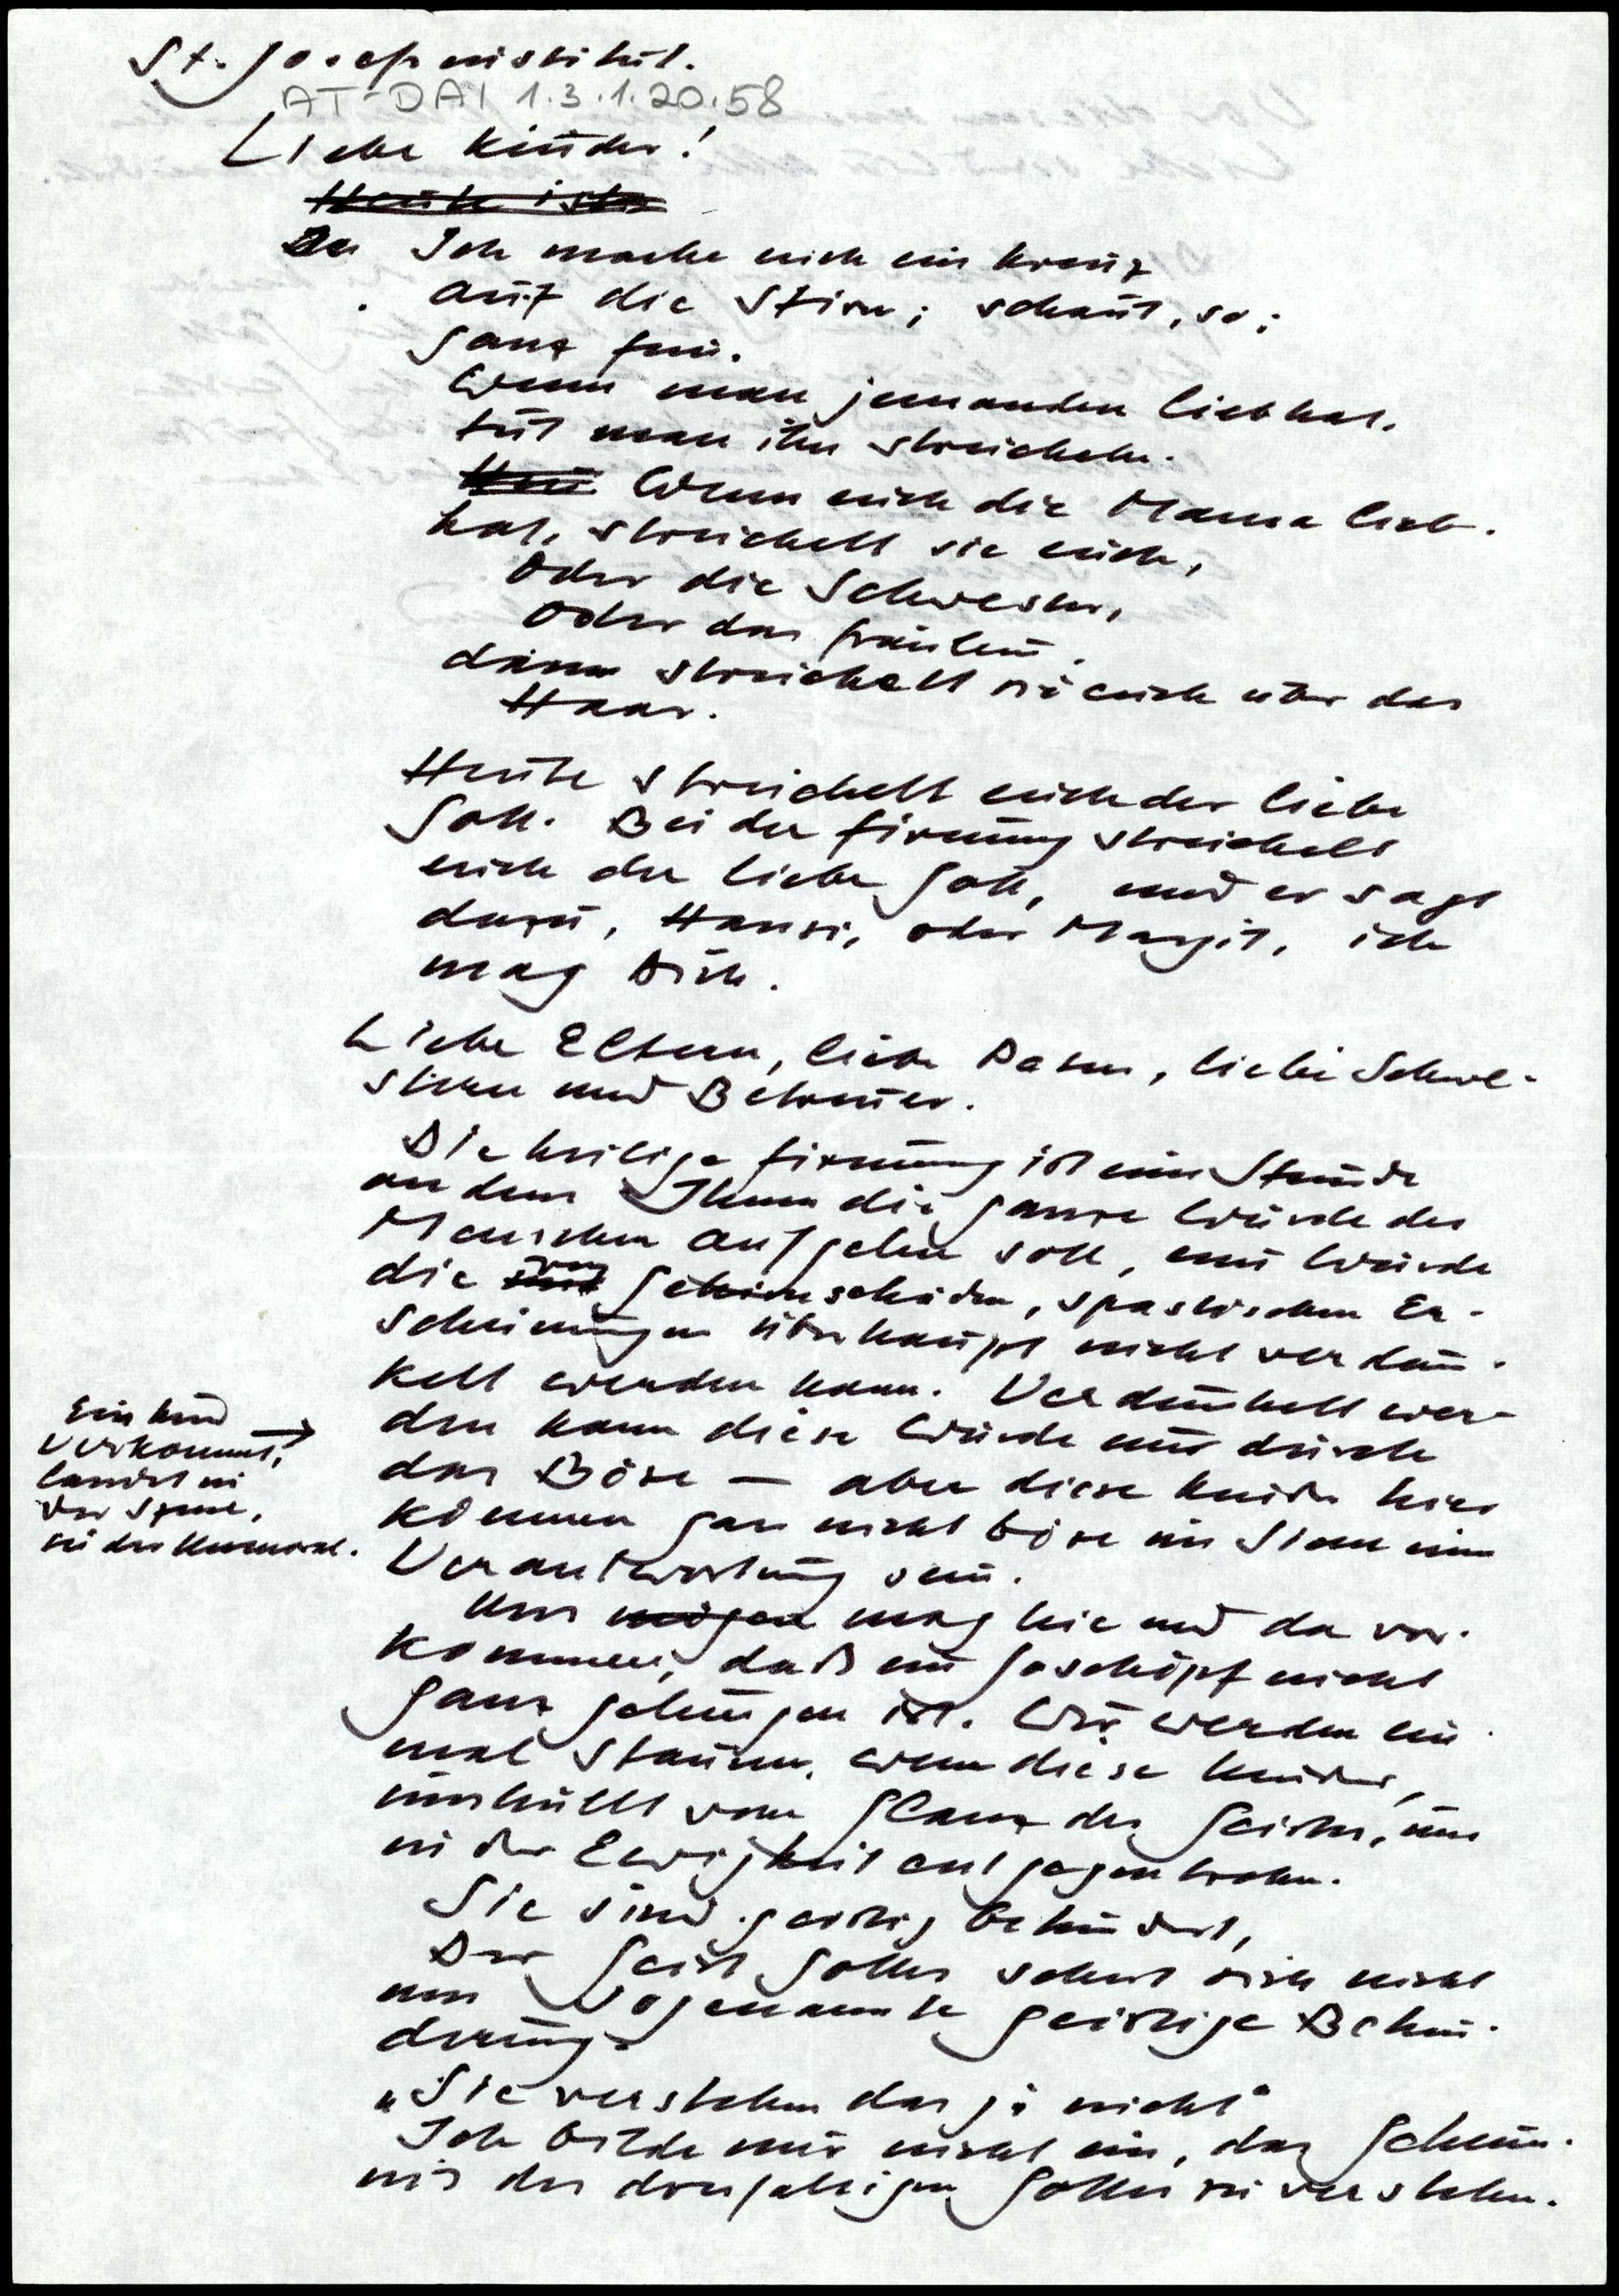 St. Josefsinstitut.
AT-DAI 1.3.1.20.58
Liebe Kinder!
Heute ist
Da Ich mache euch ein Kreuz
auf die Stirn; schaut, so;
ganz fein.
Wenn man jemanden lieb hat,
tut man ihn streicheln.
Wenn euch die Mama lieb
hat, streichelt sie euch,
oder die Schwester,
oder das Fräulein.
dann streichelt sie euch über das
Haar.
Heute streichelt euch der liebe
Gott. Bei der Firmung streichelt
euch der liebe Gott, und er sagt
dazu, Hansi, oder Margit, ich
mag Dich.
Liebe Eltern, liebe Paten, liebe Schwe-
stern und Betreuer.
Die heilige Firmung ist eine Stunde
an dem Ihnen die ganze Würde des
Menschen aufgehen soll, eine Würde
die von Gehirnschäden, spastischen Er-
scheinungen überhaupt nicht verdun-
kelt werden kann. Verdunkelt wer-
den kann diese Würde nur durch
das Böse – aber diese Kinder hier
können gar nicht böse im Sinn einer
Verantwortung sein.
Ein Kind
verkommt,
landet in
der Szene,
in der Unmoral.
Uns mögen mag hie und da vor-
kommen, daß ein Geschöpf nicht
ganz gelungen ist. Wir werden ein-
mal staunen, wenn diese Kinder,
umhüllt vom Glanz des Geistes, uns
in der Ewigkeit entgegentreten.
Sie sind geistig behindert,
Der Geist Gottes schert sich nicht
um sogenannte geistige Behin-
derung.
"Sie verstehen das ja nicht"
Ich bilde mir nicht ein, das Geheim-
nis des dreifaltigen Gottes zu verstehen.